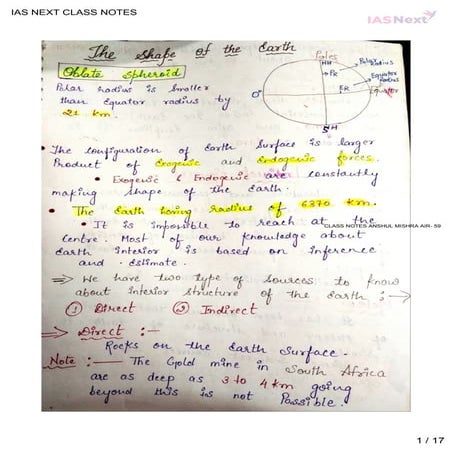 IAS NEXT CLASS NOTES
IASNext
The Shape of the Earth
Oblate Spheroid
Polar radius is smaller
than Equator radius by
21 km.
Poles
NH
PR
Polar Radius
Equator Radius
ER
Equator
0°
SH
The configuration of Earth Surface is larger
Product of Exogenic and Endogenic forces.
• Exogenic & Endogenic are constantly
making shape of the Earth.
The Earth having radius of 6370 km.
• It is impossible to reach at the
CLASS NOTES ANSHUL MISHRA AIR- 59
Centre. Most of our knowledge about
Earth interior is based on inference
and Estimate.
→ We have two type of Sources to know
about interior structure of the Earth :→
① Direct ② Indirect
→ Direct :-
Rocks on the Earth Surface.
Note :- The Gold mine in South Africa
are as deep as 3 to 4 km going
beyond this is not Possible.
1 / 17